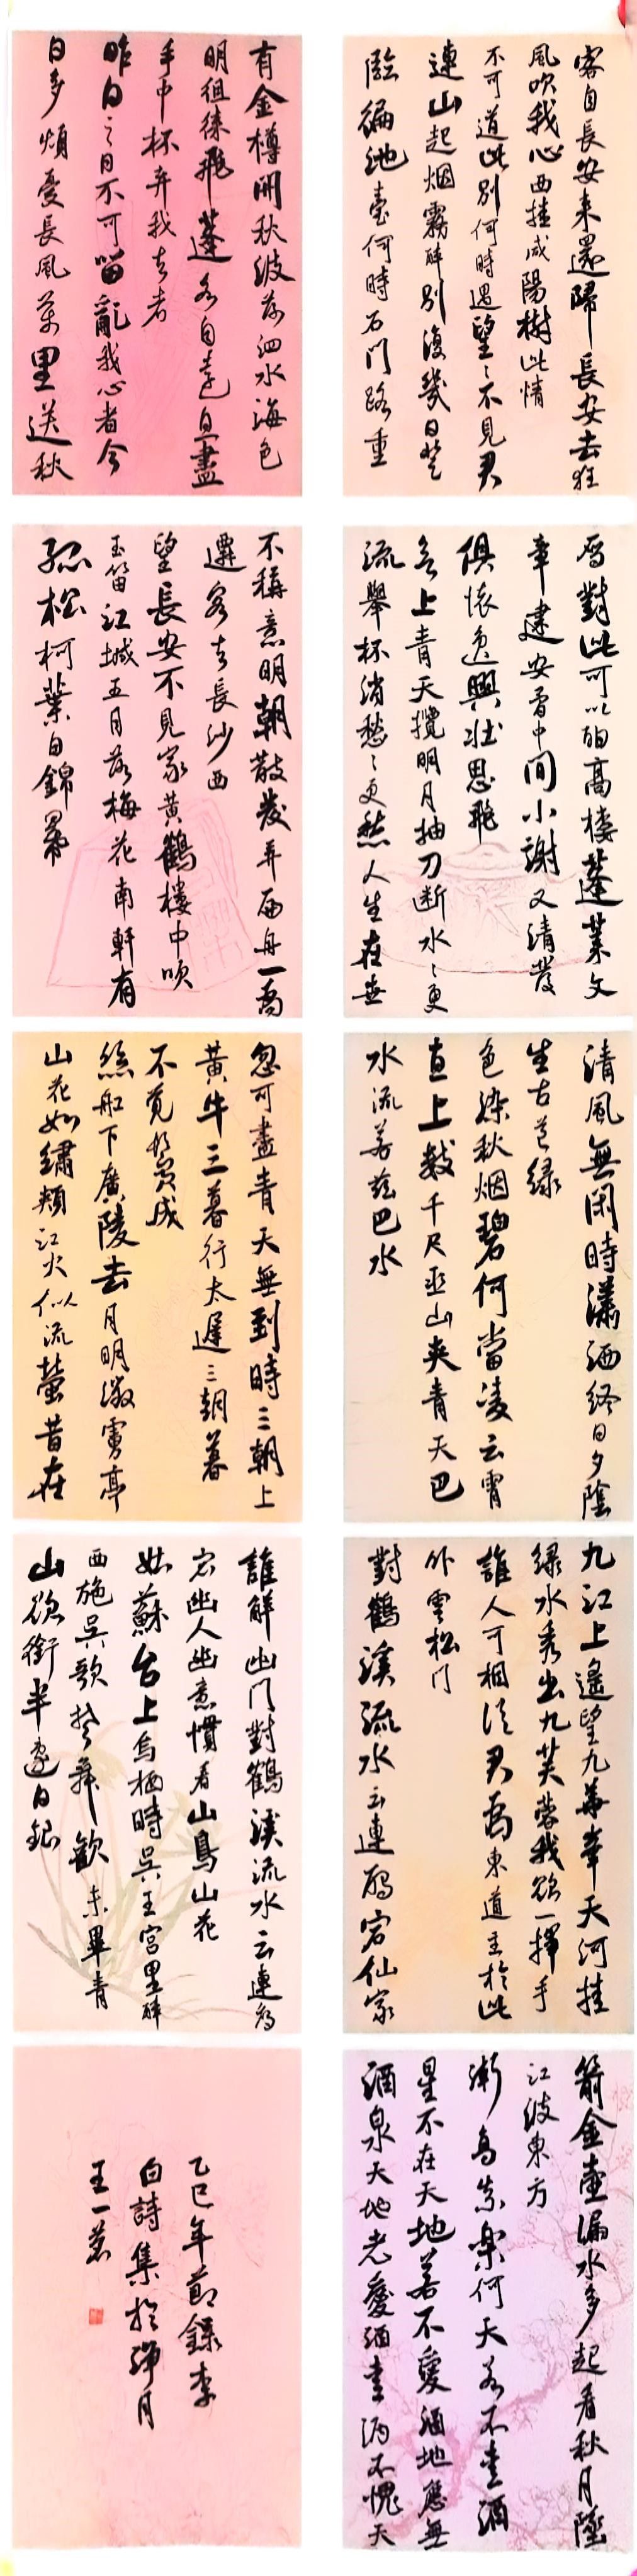 客自長安来還歸長安去狂
風吹我心西挂咸陽樹此情
不可道此别何時遇望〻不見君
連山起烟霧醉别復幾日登
臨徧池臺何時石門路重
有金樽開秋波落泗水海色
明徂徕飛蓬各自遠且盡
手中杯弃我去者
昨日之日不可留亂我心者今
日多煩憂長風萬里送秋
雁對此可以酣高樓蓬萊文
章建安骨中間小謝又清發
俱懷逸興壯思飛
欲上青天攬明月抽刀断水〻更
流舉杯消愁〻更愁人生在世
不稱意明朝散发弄扁舟一為
遷客去長沙西
望長安不見家黄鶴樓中吹
玉笛江城五月落梅花南軒有
孤松柯葉自錦羃
清風無閑時瀟洒終日夕陰
生古苔绿
色染秋烟碧何當凌云霄
直上数千尺巫山夾青天巴
水流若兹巴水
忽可盡青天無到時三朝上
黄牛三暮行太遲三朝暮
不覓鬢成
絲船下廣陵去月明徵虜亭
山花如繡頰江火似流螢昔在
九江上遙望九華峯天河挂
绿水秀出九芙蓉我欲一揮手
誰人可相從君為東道主於此
卧雲松門
對鶴溪流水云連雁宕仙家
誰解幽門對鶴溪流水云連雁
宕幽人幽意慣看山鳥山花
姑蘇台上烏栖時吳王宫里醉
西施吳歌楚舞歡未畢青
山欲銜半邊日銀
箭金壺漏水多起看秋月墜
江波東方
漸高奈樂何天若不愛酒酒
星不在天地若不愛酒地應無
酒泉天地老愛酒愛酒不愧天
乙巳年節錄李
白詩集於净月
王一茗